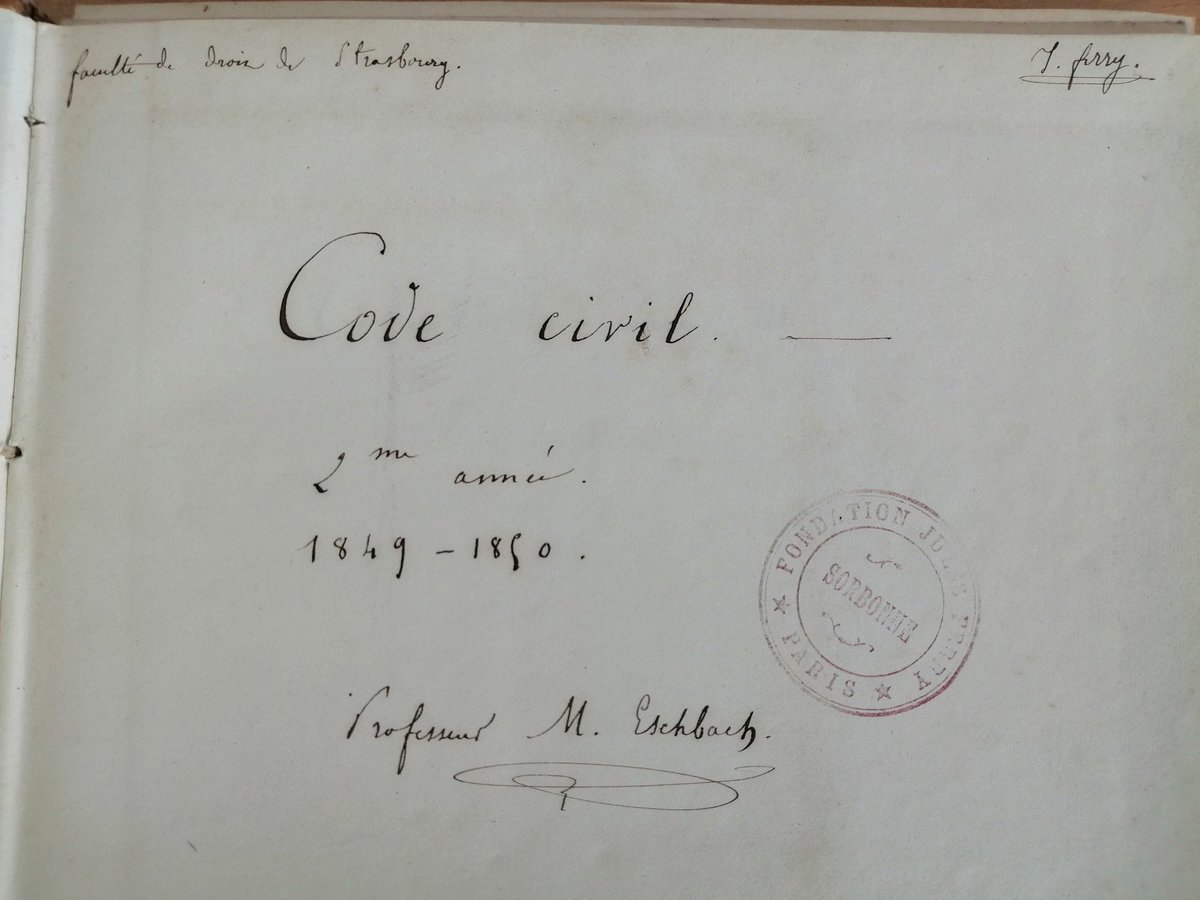 faculté de droit de Strasbourg.
J. ferry.
Code civil. —
2me année.
1849 - 1850.
FONDATION JULES FERRY
SORBONNE
★ PARIS ★
Professeur M. Eschbach.